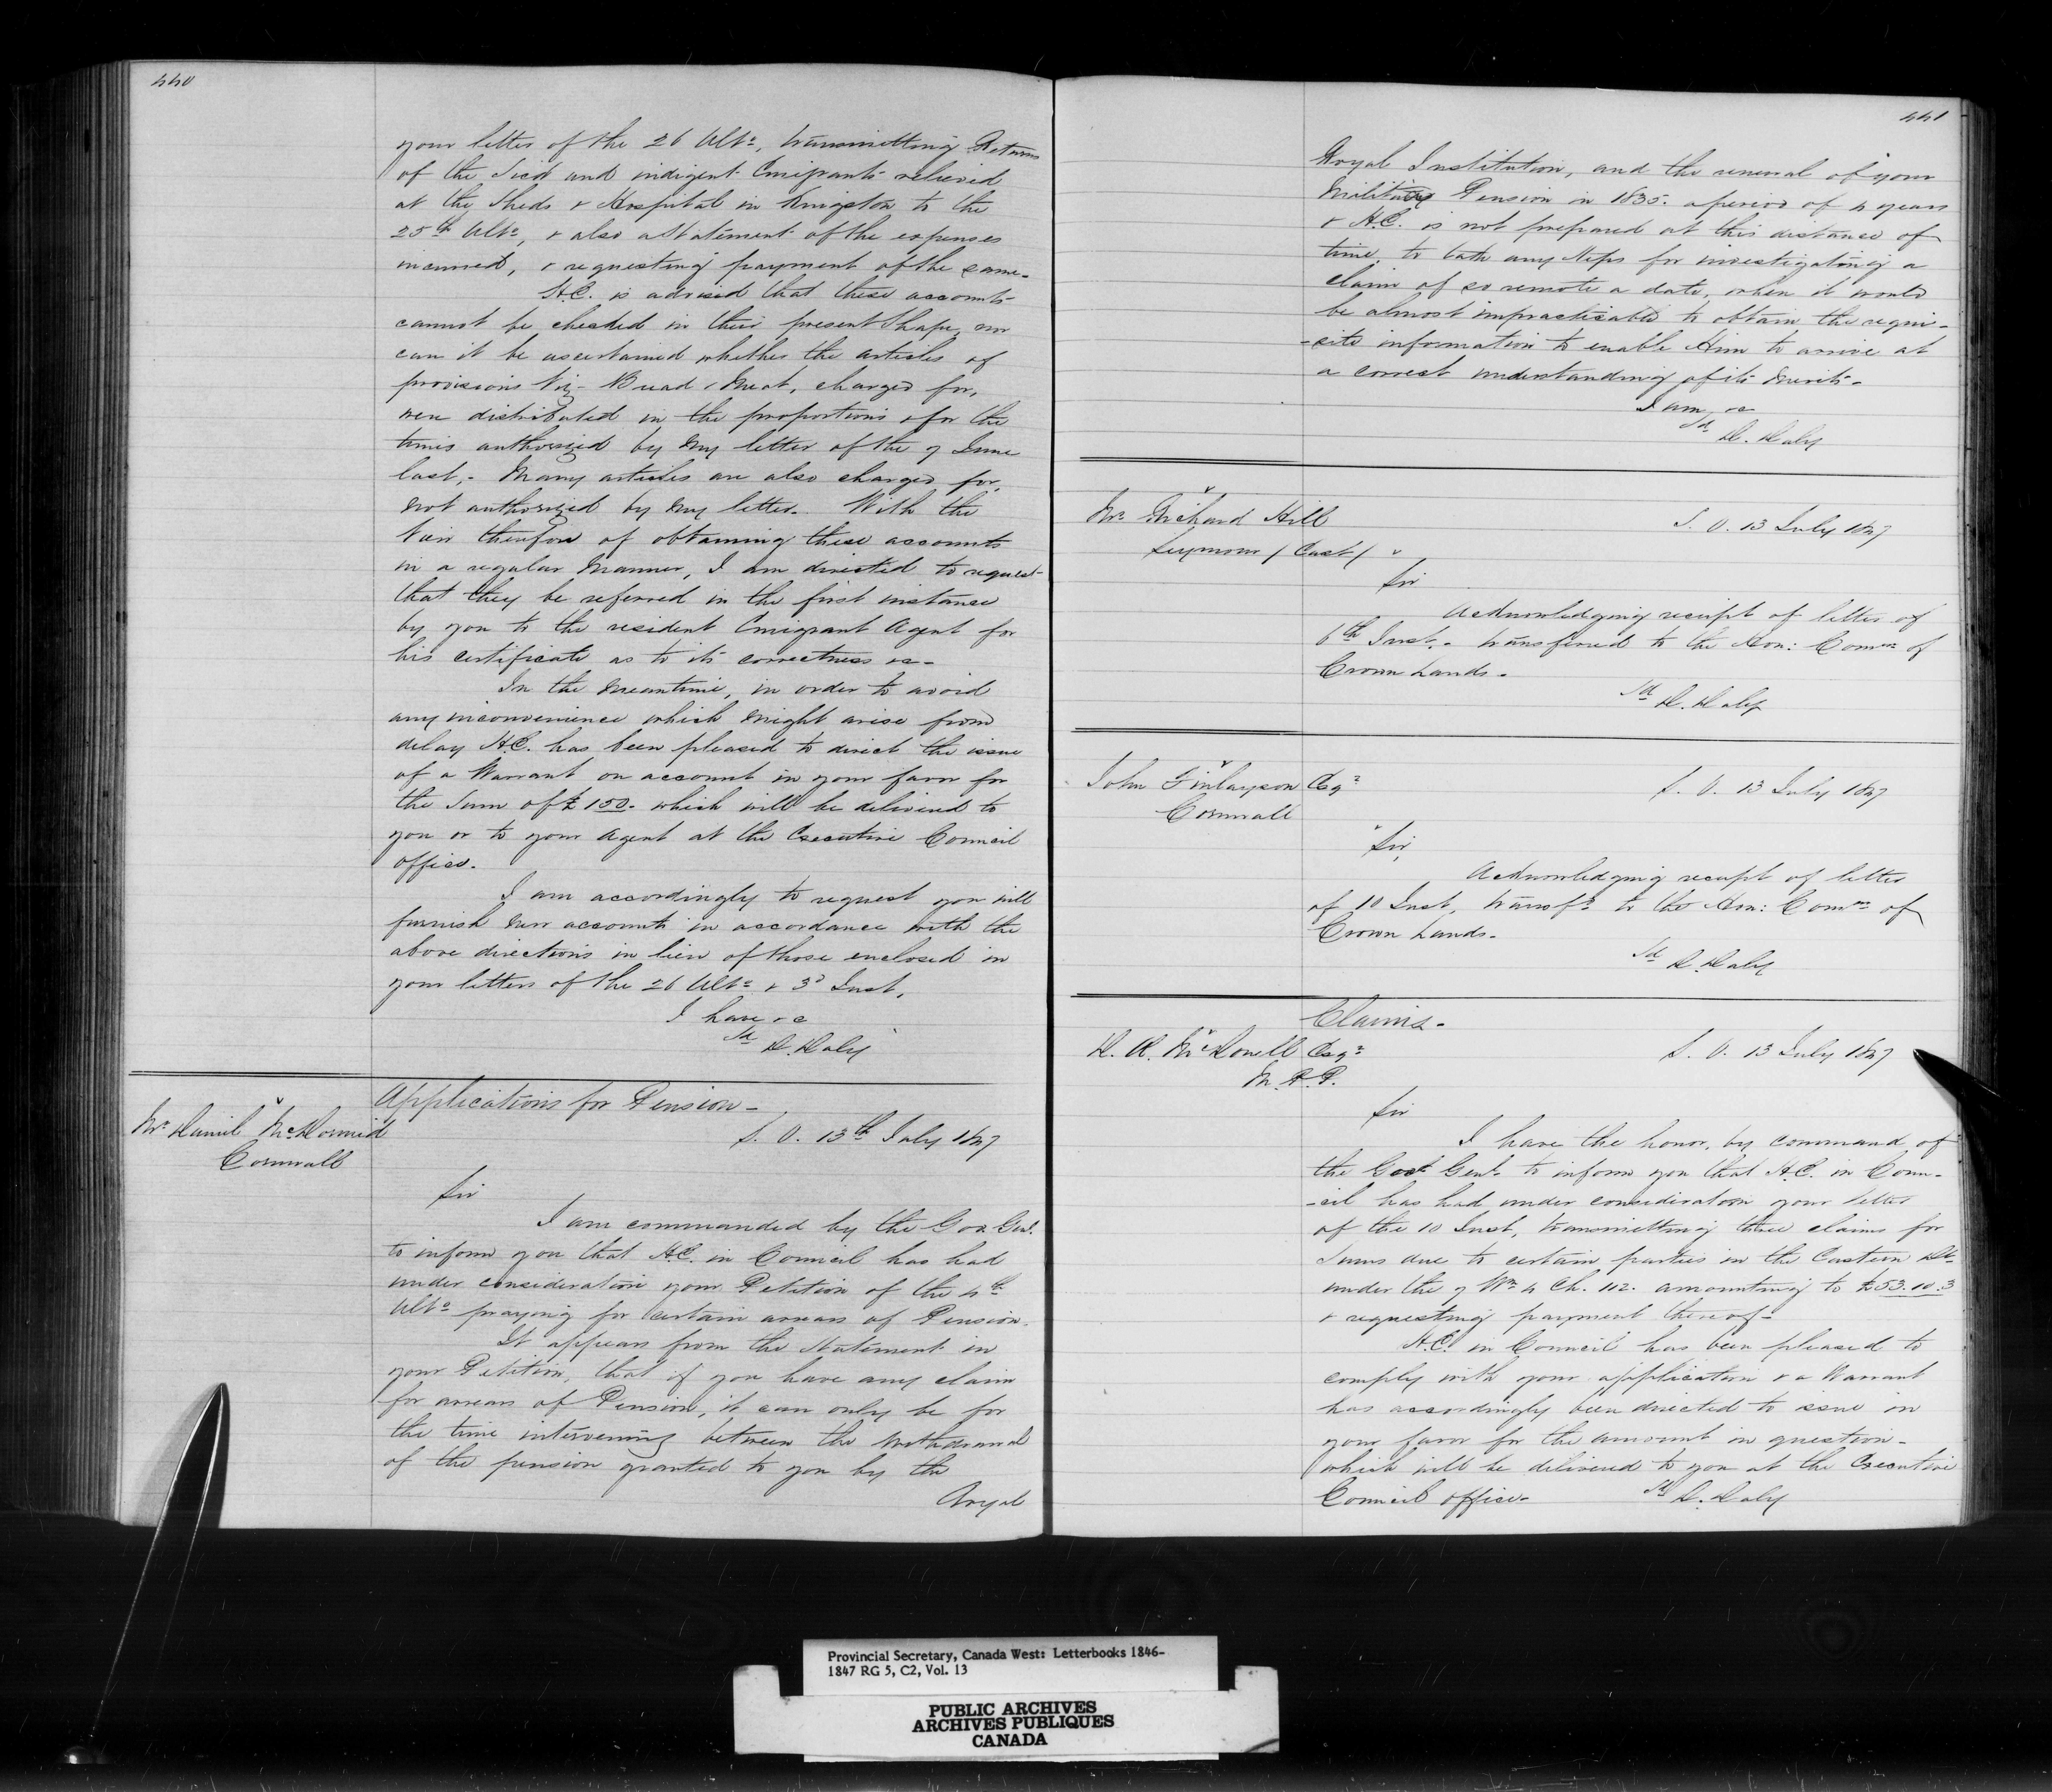 440
your letter of the 26 Ulto, transmitting Returns
of the Sick and indigent Emigrants relieved
at the Sheds & Hospital in Kingston to the
25th Ulto, & also a Statement of the expenses
incurred, & requesting payment of the same.
H.E. is advised that these accounts
cannot be checked in their present Shape, nor
can it be ascertained whether the articles of
provisions Viz- Bread & Meat, charged for,
were distributed in the proportions & for the
times authorized by my letter of the 7 June
last,- Many articles are also charged for,
not authorized by my letter. With the
View therefore of obtaining these accounts
in a regular Manner, I am directed to request
that they be referred in the first instance
by you to the resident Emigrant Agent for
his certificate as to its correctness &c-
In the meantime, in order to avoid
any inconvenience which might arise from
delay H.E. has been pleased to direct the issue
of a Warrant on account in your favor for
the Sum of £150- which will be delivered to
you or to your Agent at the Executive Council
office.
I am accordingly to request you will
furnish new accounts in accordance with the
above directions in lieu of those enclosed in
your letters of the 26 Ulto & 3d Inst,
I have &c
Sd D. Daly
Applications for Pension-
Mr Daniel McDormid
Cornwall
S. O. 13th July 1847
Sir
I am commanded by the Gov. Genl.
to inform you that H.E. in Council has had
under consideration your Petition of the 4th
Ulto praying for certain arrears of Pension.
It appears from the Statement in
your Petition, that if you have any claim
for arrears of Pension, it can only be for
the time intervening between the withdrawal
of the pension granted to you by the
Royal
441
Royal Institution, and the renewal of your
Military Pension in 1835. a period of 4 years
& H.E. is not prepared at this distance of
time, to take any Steps for investigating a
claim of so remote a date, when it would
be almost impracticable to obtain the requi-
-site information to enable Him to arrive at
a correct understanding of its merits-
I am, &c
Sd D. Daly
Mr Richard Hill
Seymour / East /
S. O. 13 July 1847
Sir
Acknowledging receipt of letter of
6th Inst,- transferred to the Hon: Commr of
Crown Lands-
Sd D. Daly
John Finlayson Esqr
Cornwall
S. O. 13 July 1847
Sir,
Acknowledging receipt of letter
of 10 Inst, transfd to the Hon: Commr of
Crown Lands-
Sd D. Daly
Claims-
D. Æ. McDonell Esqr
M.P.P.
S. O. 13 July 1847
Sir
I have the honor, by command of
the Govr Genl. to inform you that H.E. in Coun-
-cil has had under consideration your letter
of the 10 Inst, transmitting three claims for
Sums due to certain parties in the Eastern Dt
under the 7 Wm 4 Ch. 112. amounting to £53.10.3
& requesting payment thereof-
H.E. in Council has been pleased to
comply with your application & a Warrant
has accordingly been directed to issue in
your favor for the amount in question-
which will be delivered to you at the Executive
Council office- Sd D. Daly
Provincial Secretary, Canada West: Letterbooks 1846-
1847 RG 5, C2, Vol. 13
PUBLIC ARCHIVES
ARCHIVES PUBLIQUES
CANADA